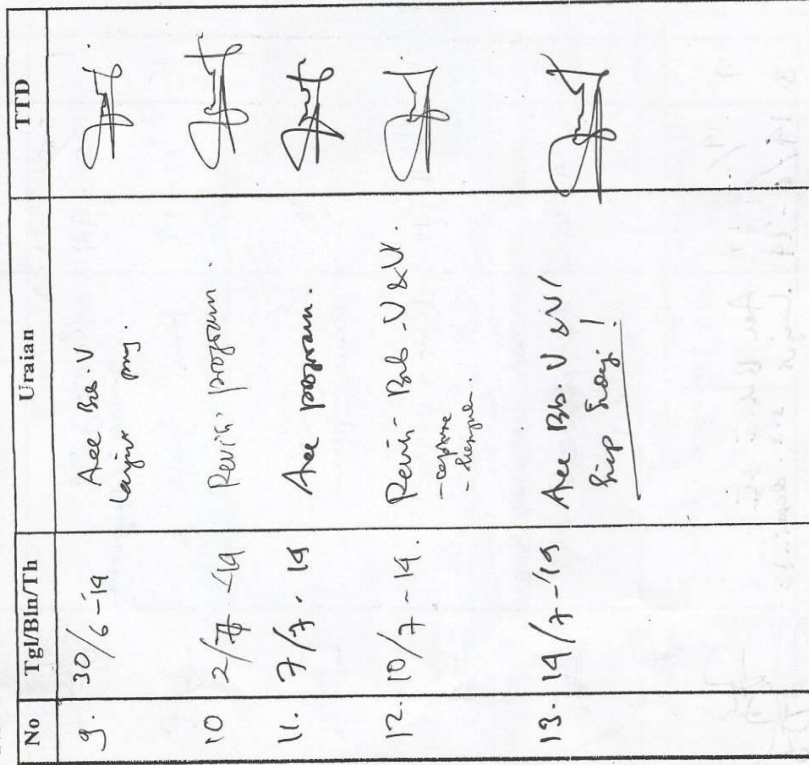 No Tgl/Bln/Th Uraian TTD
9. 30/6-19 Acc Bab. V
lanjut prog.
10 2/7-19 Revisi program.
11. 7/7-19 Acc program.
12. 10/7-19. Revisi Bab-V & VI.
- capture
13. 14/7-'19 Acc Bab V & VI
Siap